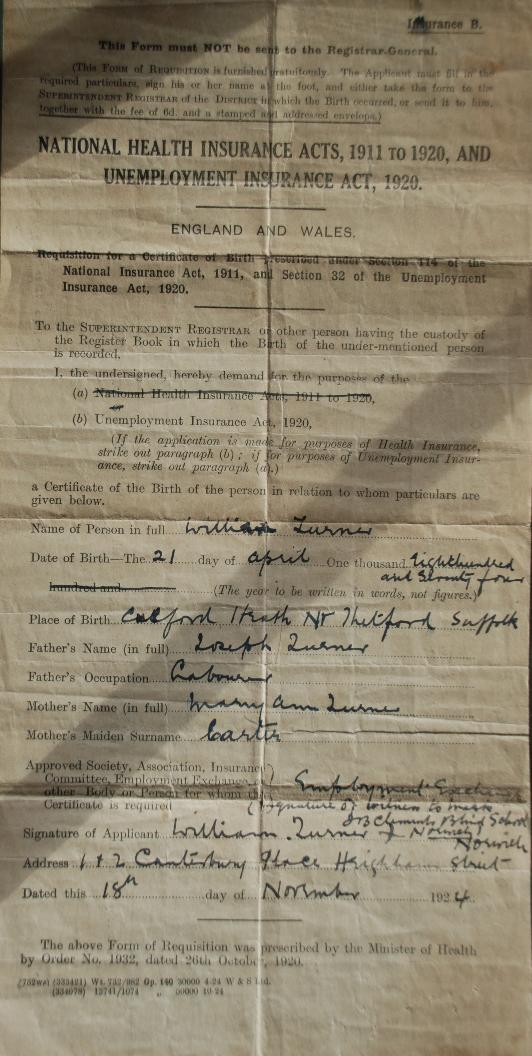 Insurance B.
This Form must NOT be sent to the Registrar-General.
(This Form of Requisition is furnished gratuitously. The Applicant must fill in the
required particulars, sign his or her name at the foot, and either take the form to the
Superintendent Registrar of the District in which the Birth occurred, or send it to him,
together with the fee of 6d. and a stamped and addressed envelope.)
NATIONAL HEALTH INSURANCE ACTS, 1911 TO 1920, AND
UNEMPLOYMENT INSURANCE ACT, 1920.
ENGLAND AND WALES.
Requisition for a Certificate of Birth prescribed under Section 114 of the
National Insurance Act, 1911, and Section 32 of the Unemployment
Insurance Act, 1920.
To the Superintendent Registrar or other person having the custody of
the Register Book in which the Birth of the under-mentioned person
is recorded.
I, the undersigned, hereby demand for the purposes of the
(a) National Health Insurance Acts, 1911 to 1920,
(b) Unemployment Insurance Act, 1920,
(If the application is made for purposes of Health Insurance,
strike out paragraph (b); if for purposes of Unemployment Insur-
ance, strike out paragraph (a).)
a Certificate of the Birth of the person in relation to whom particulars are
given below.
Name of Person in full William Turner
Date of Birth—The 21 day of April One thousand Eight hundred
and Seventy four
hundred and (The year to be written in words, not figures.)
Place of Birth Culford Heath Nr Thetford Suffolk
Father's Name (in full) Joseph Turner
Father's Occupation Labourer
Mother's Name (in full) Mary Ann Turner
Mother's Maiden Surname Carter
Approved Society, Association, Insurance
Committee, Employment Exchange
other Body or Person for whom this Employment Exchange
Certificate is required Signature of witness to mark
Blind School
Signature of Applicant William Turner Norwich
Address 1 & 2 Canterbury Place Heigham Street
Dated this 18th day of November 1924.
The above Form of Requisition was prescribed by the Minister of Health
by Order No. 1932, dated 26th October, 1920.
(752ws) (333421) Wt. 732/982 Gp. 140 30000 4-24 W & S Ltd.
(334078) 13741/1074 " 50000 10-24